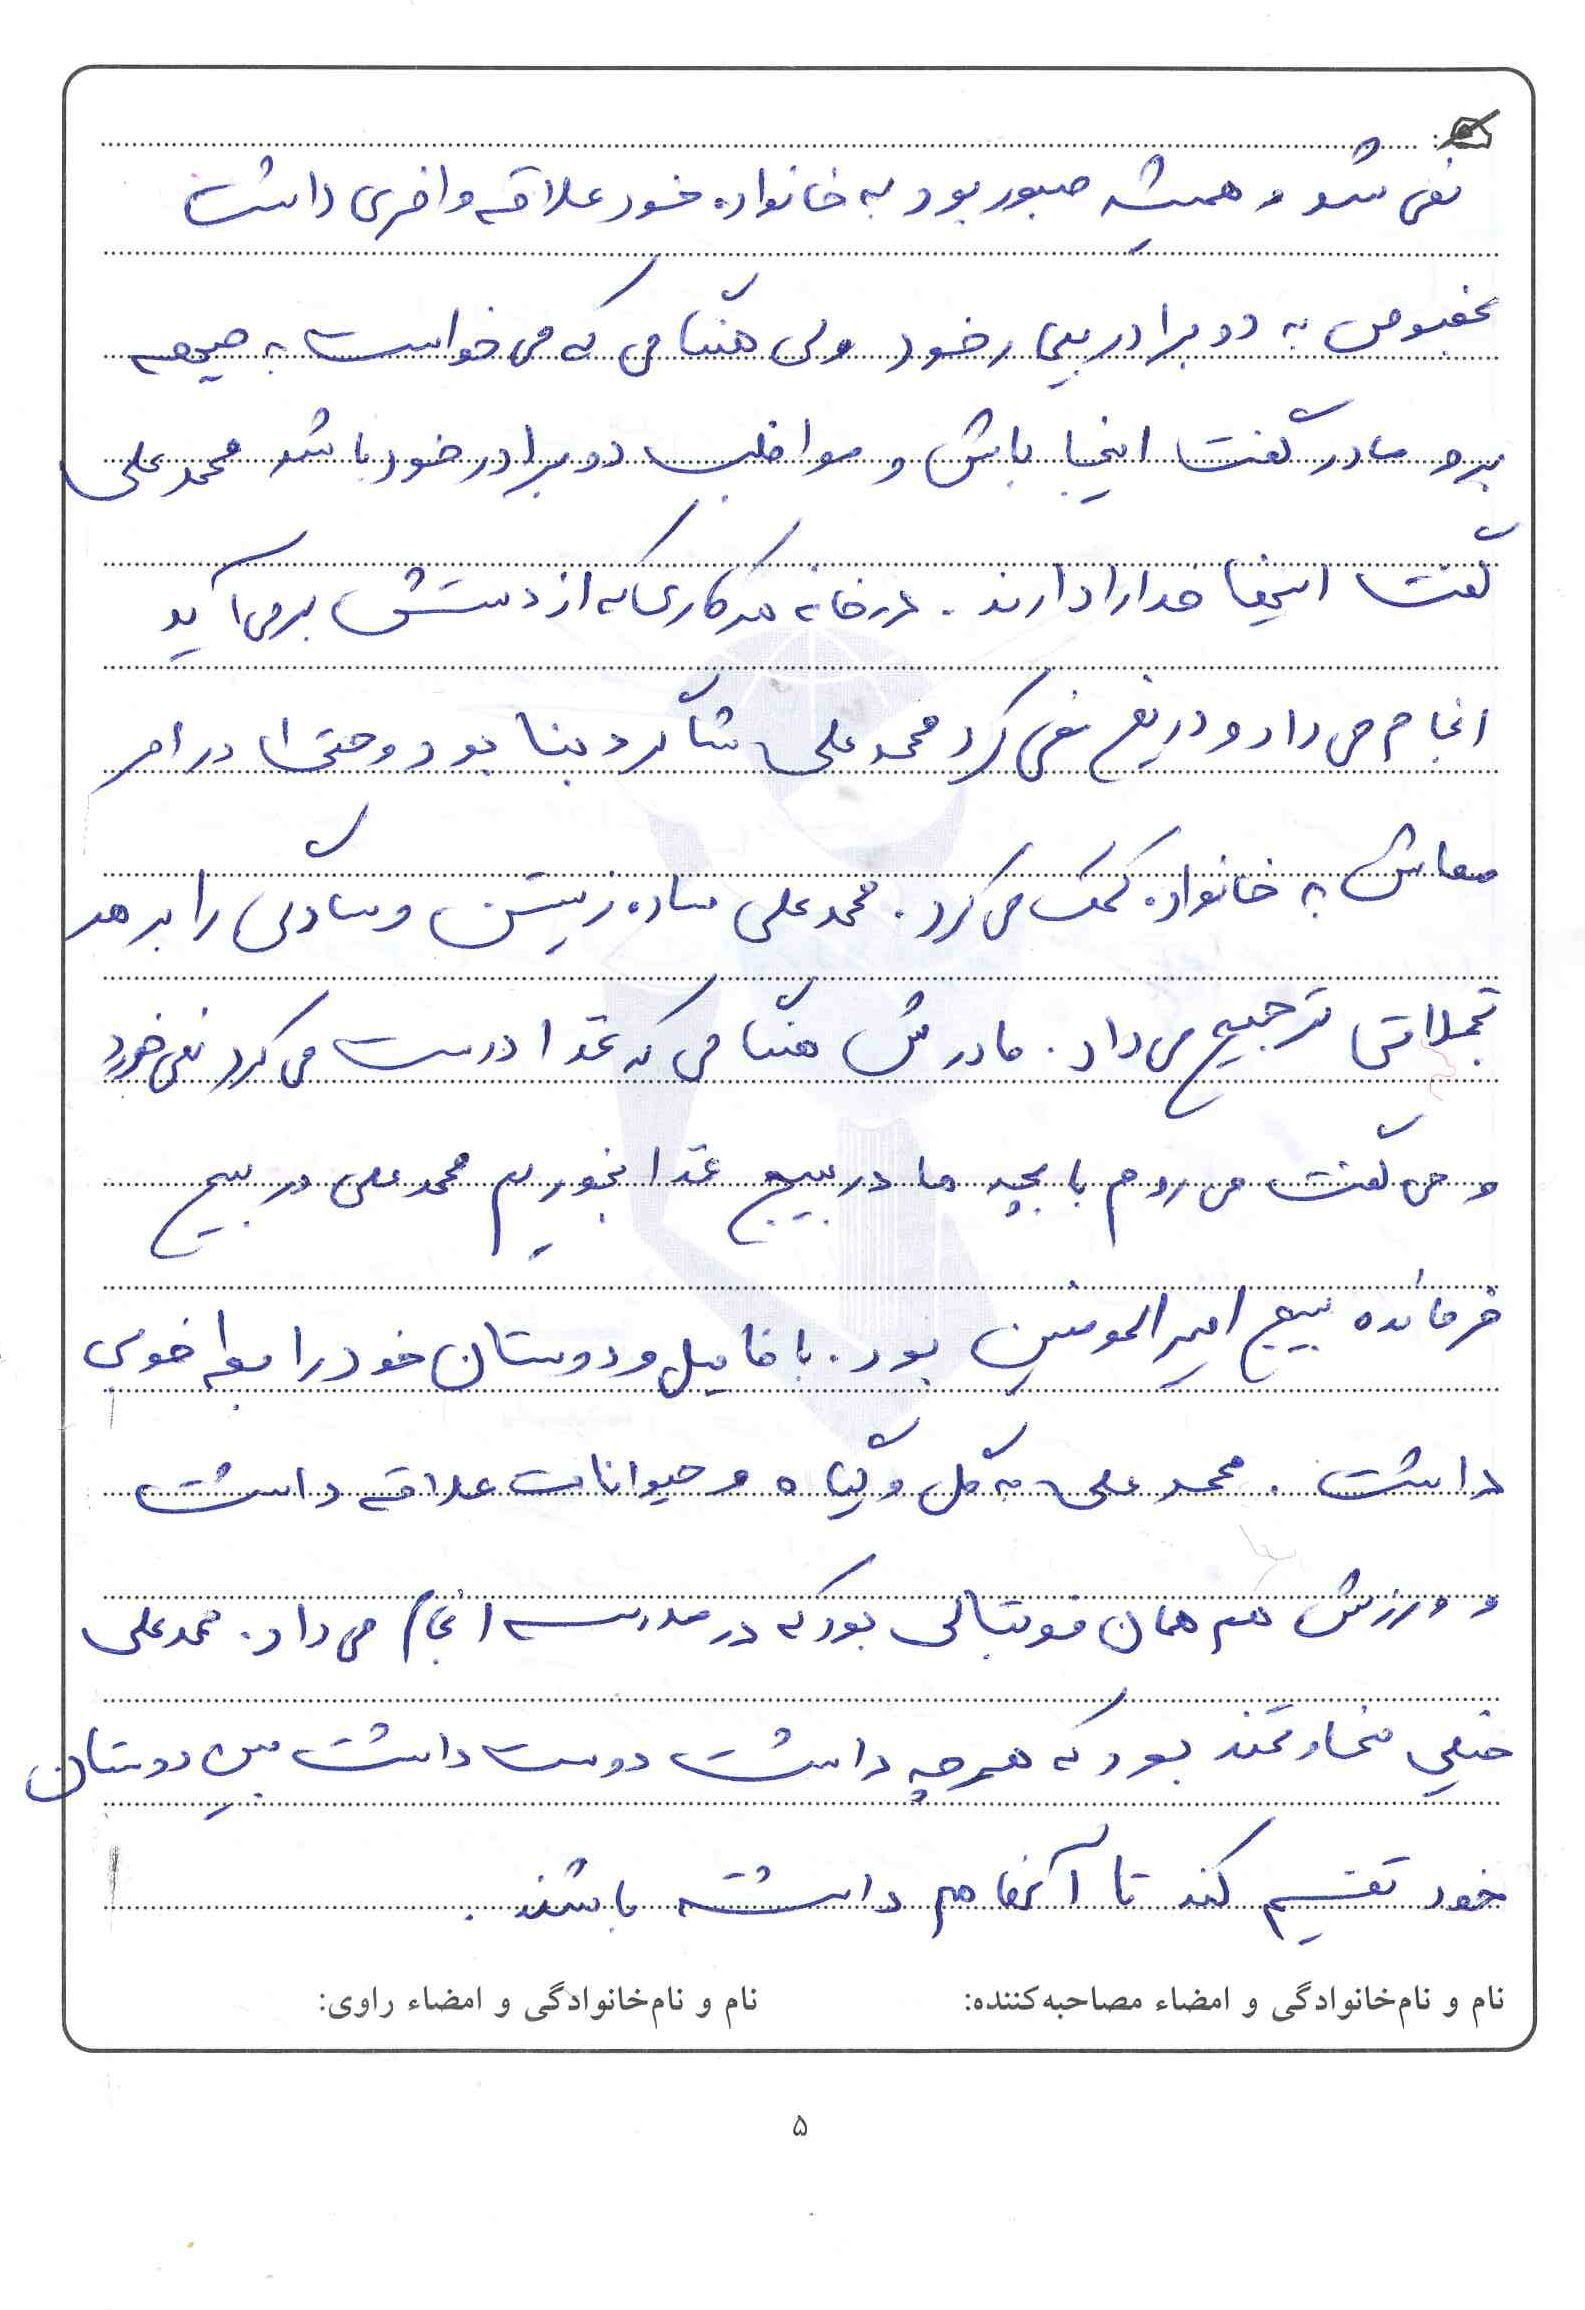 نمی شد و همیشه صبور بود به خانواده خود علاقه وافری داشت
بخصوص به دو برادر بیمار خود ولی هنگامی که می خواست به جبهه
برود مادر گفت اینجا باش و مواظب دو برادر خود باشد محمدعلی
گفت اینها خدا را دارند . در خانه هر کاری که از دستش برمی آید
انجام می داد و دریغ نمی کرد محمدعلی شاگرد بنا بود و حتی در امر
معاش به خانواده کمک می کرد . محمدعلی ساده زیستن و سادگی را بر هر
تجملاتی ترجیح می داد . مادرش هنگامی که غذا درست می کرد نمی خورد
و می گفت می روم با بچه ها در بسیج غذا بخوریم محمدعلی در بسیج
فرمانده بسیج امیرالمومنین بود . با فامیل و دوستان خود رابطه خوبی
داشت . محمدعلی به گل و گیاه و حیوانات علاقه داشت
و ورزش هم همان فوتبالی بود که در مدرسه انجام می داد . محمدعلی
خیلی سخاوتمند بود که هرچه داشت دوست داشت بین دوستان
خود تقسیم کند تا آنها هم داشته باشند .
نام و نام‌خانوادگی و امضاء مصاحبه‌کننده: نام و نام‌خانوادگی و امضاء راوی:
۵